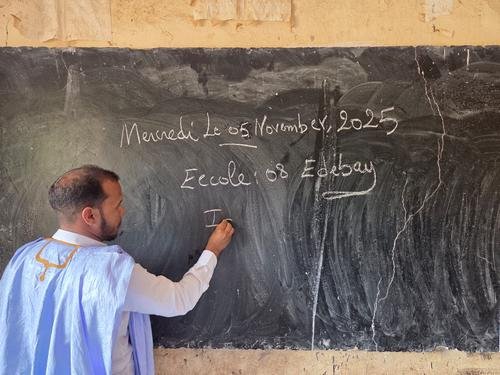 Mercredi Le 05 November, 2025
Eccole : 08 Edebay
I